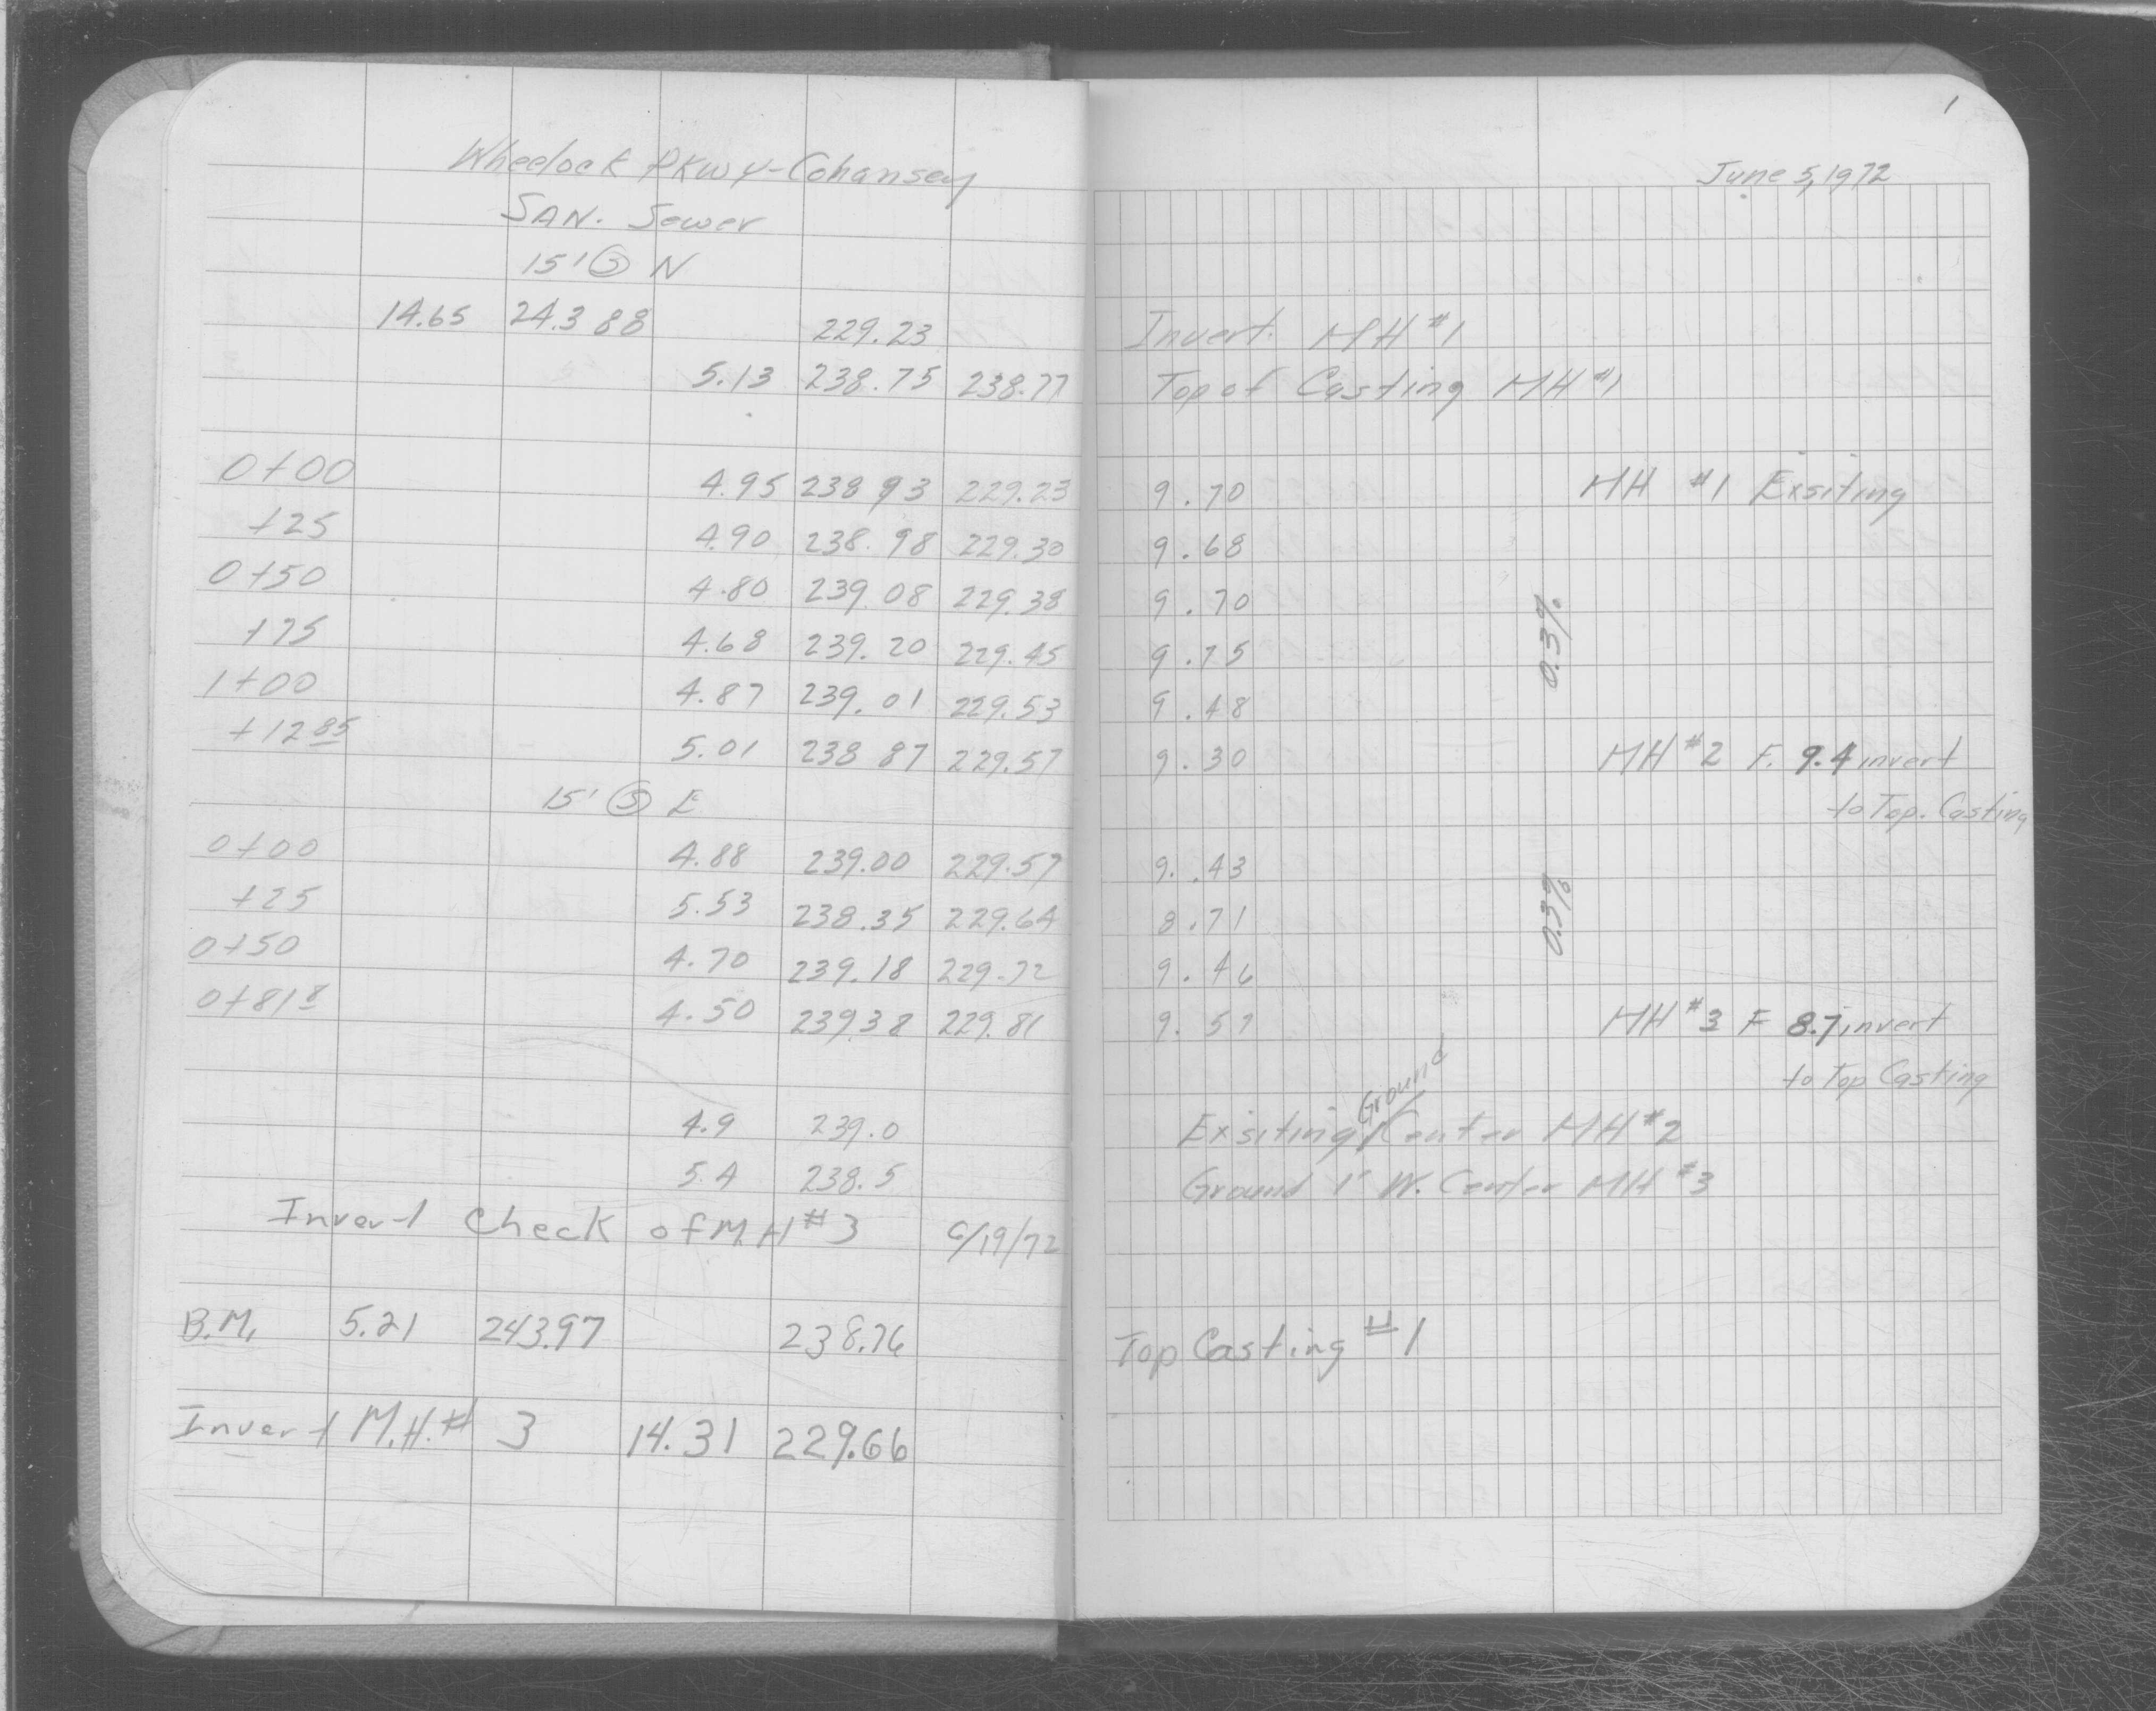 Wheelock Pkwy-Cohansey
SAN. Sewer
15' Ⓢ N
14.65 243 88 229.23
5.13 238.75 238.77
0+00 4.95 238 93 229.23
+25 4.90 238.98 229.30
0+50 4.80 239 08 229.38
+75 4.68 239.20 229.45
1+00 4.87 239.01 229.53
+12 85 5.01 238 87 229.57
15' Ⓢ E
0+00 4.88 239.00 229.57
+25 5.53 238.35 229.64
0+50 4.70 239.18 229.72
0+81 8 4.50 239.38 229.81
4.9 239.0
5.4 238.5
Invert Check of M.H #3 6/19/72
B.M. 5.21 243.97 238.76
Invert M.H.# 3 14.31 229.66
1
June 5, 1972
Invert. MH #1
Top of Casting MH #1
9.70 MH #1 Exsiting
9.68
9.70
0.3%
9.75
9.48
9.30 MH #2 F. 9.4 invert
to Top. Casting
9.43
8.71
0.3%
9.46
9.57 MH #3 F 8.7 invert
to Top Casting
Exsiting Ground Center MH #2
Ground 1' W. Center MH #3
Top Casting #1